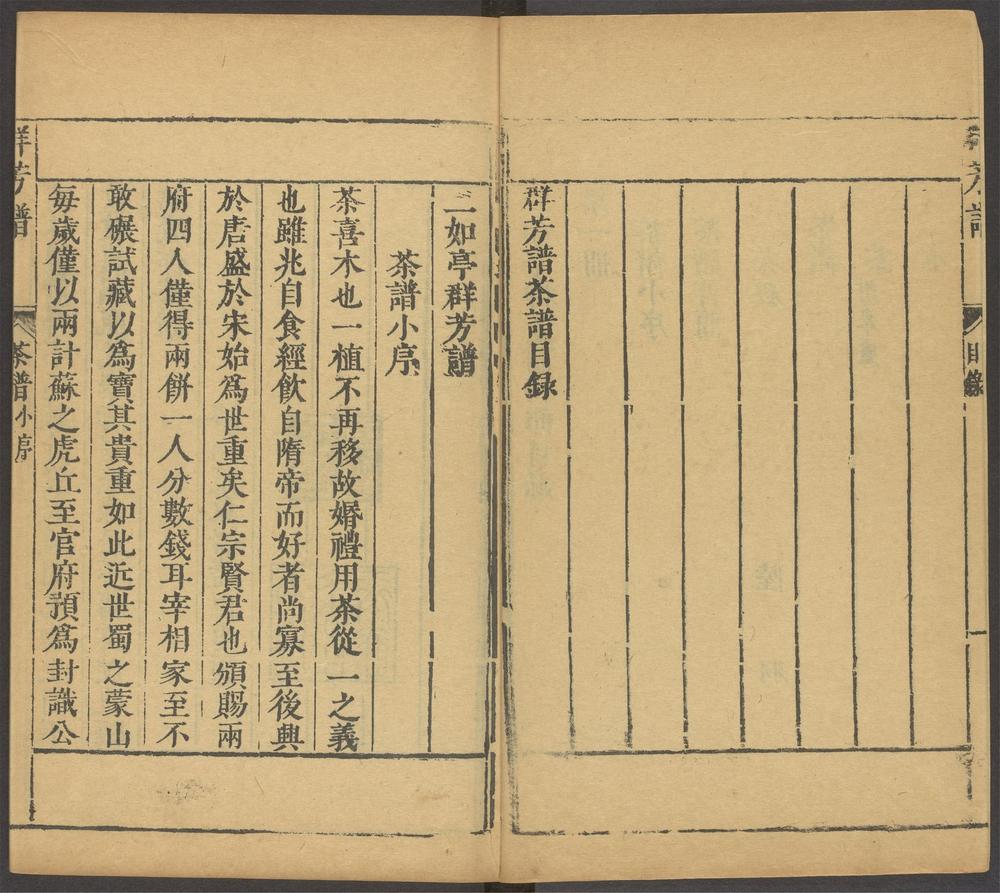 群芳譜
目錄
一
群芳譜茶譜目録
二如亭群芳譜
茶譜小序
茶喜木也一植不再移故婚禮用茶從一之義
也雖兆自食經飲自隋帝而好者尚寡至後興
於唐盛於宋始為世重矣仁宗賢君也頒賜兩
府四人僅得兩餅一人分數錢耳宰相家至不
敢碾試藏以為寶其貴重如此近世蜀之蒙山
每歲僅以兩計蘇之虎丘至官府預為封識公
群芳譜
茶譜小序